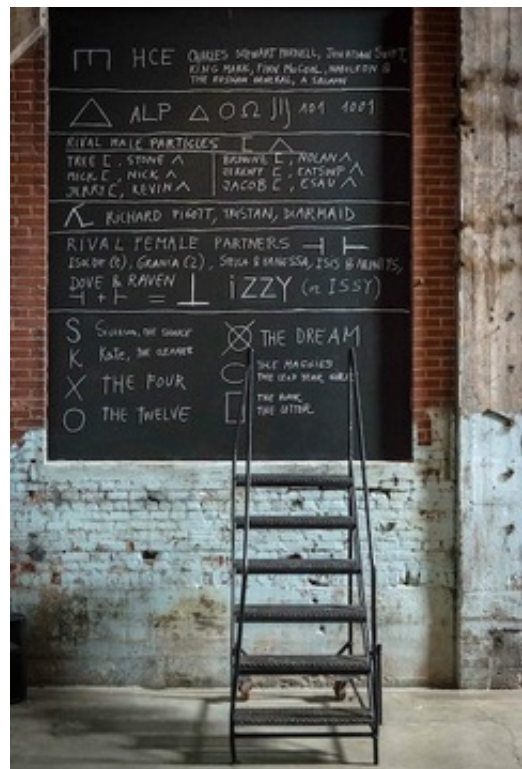 E HCE CHARLES STEWART PARNELL, JONATHAN SWIFT,
KING MARK, FINN McCOOL, NAPOLEON &
THE RUSSIAN GENERAL, A SALMON
△ ALP △ O Ω 101 1001
RIVAL MALE PARTICLES [ Λ
TREE [, STONE Λ
MICK [, NICK Λ
JERRY [, KEVIN Λ
BROWNE [, NOLAN Λ
JEREMY [, EATSUP Λ
JACOB [, ESAU Λ
RICHARD PIGOTT, TRISTAN, DIARMAID
RIVAL FEMALE PARTNERS ⊣ ⊢
ISOLDE (2), GRANIA (2), STELLA & VANESSA, ISIS &
DOVE & RAVEN
⊣ + ⊢ = ⊥ iZZY (or ISSY)
S
K Kate, THE
X THE FOUR
O THE TWELVE
⊗ THE DREAM
THE MAGGIES
THE LEAP YEAR GIRLS
THE BOOK,
THE LETTER